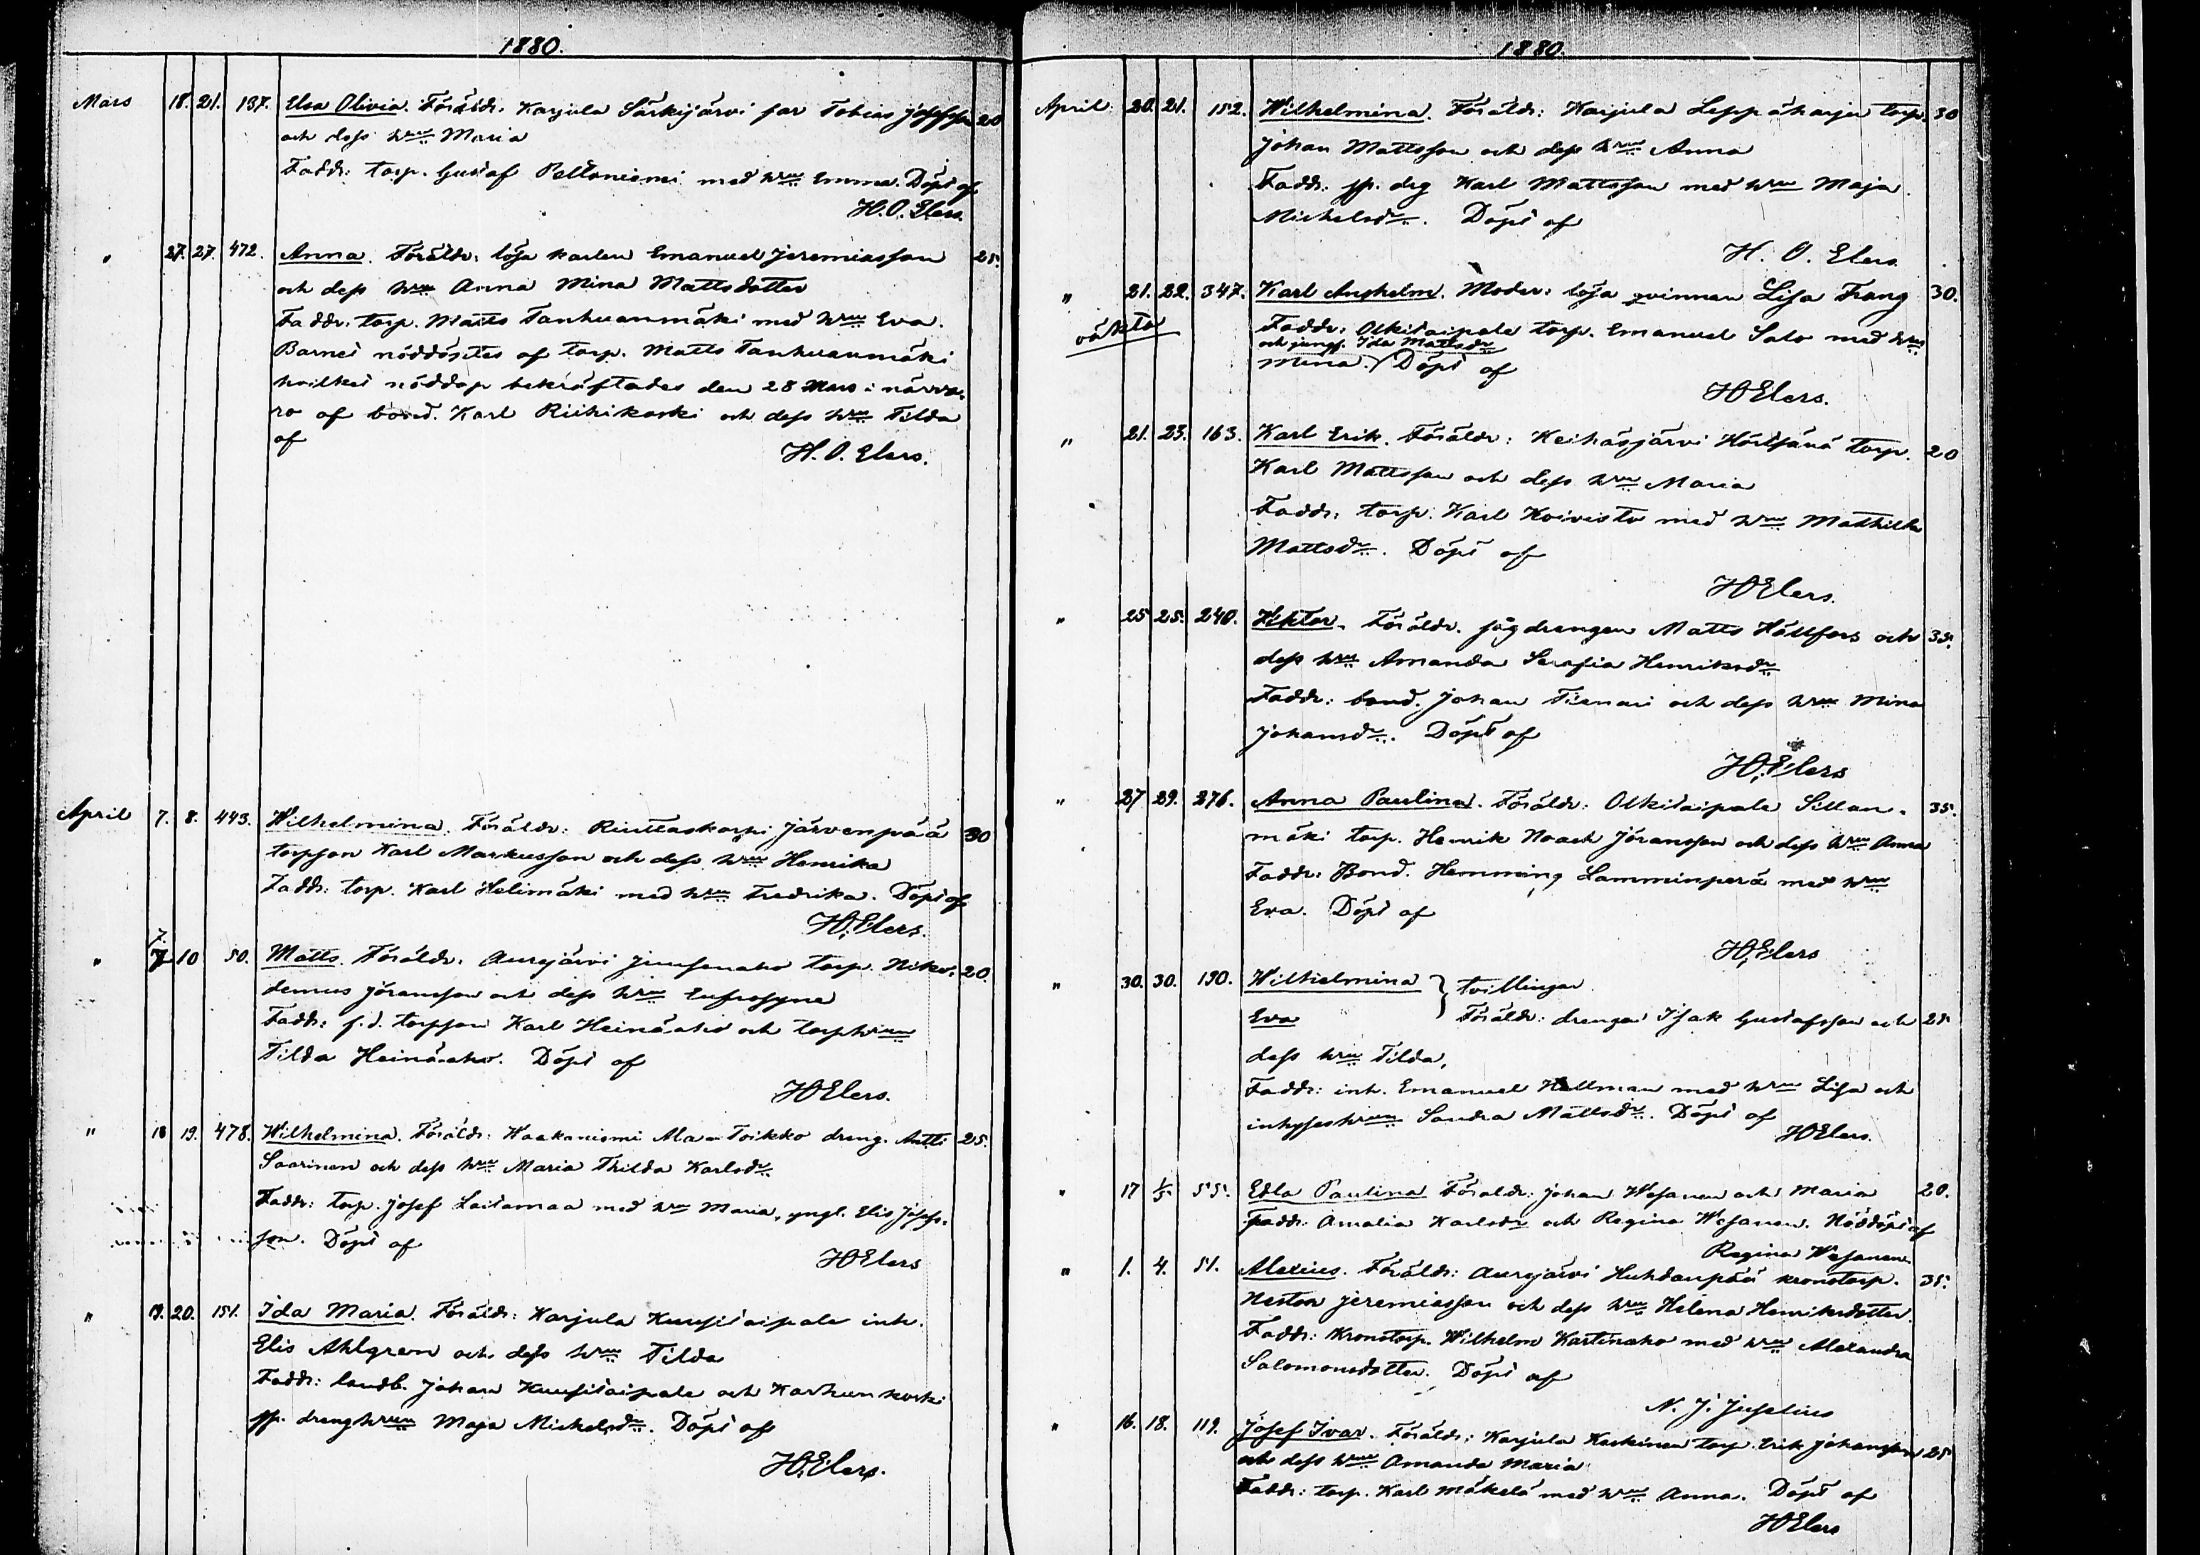 1880.
Mars 18. 21. 137. Elsa Olivia. Föräldr: Karjula Särkijärvi far Tobias Josefsson 20
och dess hru Maria
Faddr: torp. Gustaf Peltoniemi med hru Emma. Döpt af
H. O. Elers.
" 27. 27. 472. Anna. Föräldr: lösa karlen Emanuel Jeremiasson 25.
och dess hru Anna Mina Mattsdotter
Faddr: torp. Matts Tanhuanmäki med hru Eva.
Barnet nöddöptes af torp. Matts Tanhuanmäki
hvilket nöddop bekräftades den 28 Mars i närva-
ro af bond. Karl Riihikoski och dess hru Tilda
af
H. O. Elers.
April 7. 8. 443. Wilhelmina. Föräldr: Riuttaskorpi Järvenpää 30
torpson Karl Markusson och dess hru Henrika
Faddr: torp. Karl Helimäki med hru Fredrika. Döpt af
HOElers.
" 7. 10 50. Matts. Föräldr: Aurejärvi Juusenaho torp. Niko- 20.
demus Jöransson och dess hru Eufrosyne
Faddr: f.d. torpson Karl Heinäaho och torphrun
Tilda Heinäaho. Döpt af
HOElers.
" 18 19. 478. Wilhelmina. Föräldr: Haakaniemi Ala-Toikko dreng. Antti 25.
Saarinen och dess hru Maria Thilda Karlsdr
Faddr: torp. Josef Laitamaa med hru Maria, yngl. Elis Josefs-
son. Döpt af
HOElers
" 19. 20. 151. Ida Maria. Föräldr: Karjula Kuusitaipale inh.
Elis Ahlgren och dess hru Tilda
Faddr: landb. Johan Kuusitaipale och Karhunkorki
sp. drenghrun Maja Michelsdr. Döpt af
HOElers.
1880.
April 20. 21. 152. Wilhelmina. Föräldr: Karjula Leppäharju torp. 30
Johan Mattsson och dess hru Anna
Faddr: sp. drg Karl Mattsson med hru Maja
Michelsdr. Döpt af
H. O. Elers
" 21. 22. 347. Karl Anshelm. Moder: lösa qvinnan Lisa Frang 30.
oäkta
Faddr: Olkitaipale torp. Emanuel Salo med hru
och jungf. Ida Mattsdr
Mina. Döpt af
HOElers.
" 21. 23. 163. Karl Erik. Föräldr: Keihäsjärvi torp. 20
Karl Mattsson och dess hru Maria
Faddr: torp. Karl Koivisto med hru Mathilda
Mattsdr. Döpt af
HOElers.
" 25 25. 240. Viktor. Föräldr: drengen Matts Hällfors och 35.
dess hru Amanda Serafia Henriksdr
Faddr: bond. Johan Tienari och dess hru Mina
Johansdr. Döpt af
HOElers
" 27 29. 276. Anna Paulina. Föräldr: Olkitaipale Sillan- 35.
mäki torp. Henrik Noach Jöransson och dess hru Anna
Faddr: Bond. Hemming Lamminperä med hru
Eva. Döpt af
HOElers
" 30. 30. 190. Wilhelmina } tvillingar
Eva Föräldr: drengen Isak Gustafsson och 25.
dess hru Tilda,
Faddr: inh. Emanuel Hellman med hru Lisa och
inhyseshrun Sandra Mattsdr. Döpt af
HOElers.
" 17 1/5 55. Edla Paulina Föräldr: Johan Wesanen och Maria 20.
Faddr: Amalia Karlsdr och Regina Wesanen. Nöddöpt af
Regina Wesanen.
" 1. 4. 51. Alexius. Föräldr: Aurejärvi Huhdanpää kronotorp. 35.
Nestor Jeremiasson och dess hru Helena Henriksdotter.
Faddr: Kronotorp. Wilhelm Kartinaho med hru Alexandra
Salomonsdotter. Döpt af
N. J. Juselius
" 16. 18. 119. Josef Ivar. Föräldr: Karjula Koskinen torp. Erik Johansson 25
och dess hru Amanda Maria
Faddr: torp. Karl Mäkelä med hru Anna. Döpt af
HOElers